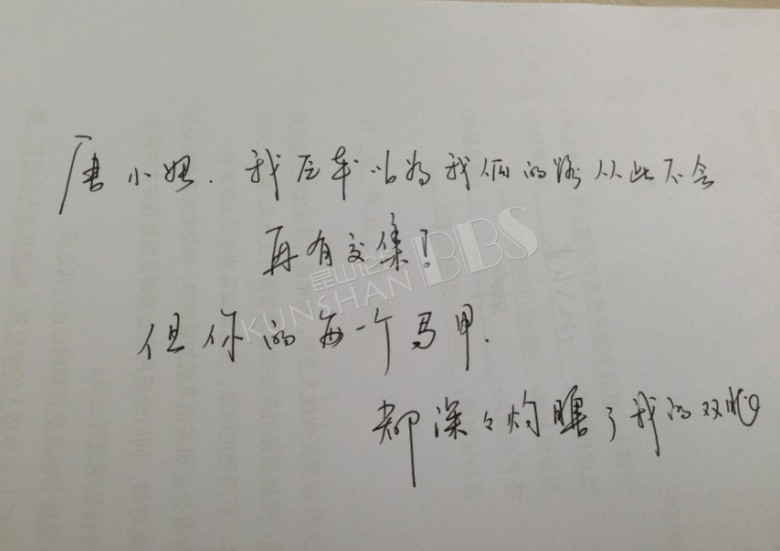 唐小姐.我原本以为我俩的路从此不会
再有交集!
但你的每一个马甲.
都深々灼瞎了我的双眼
昆山论坛
KUNSHAN BBS